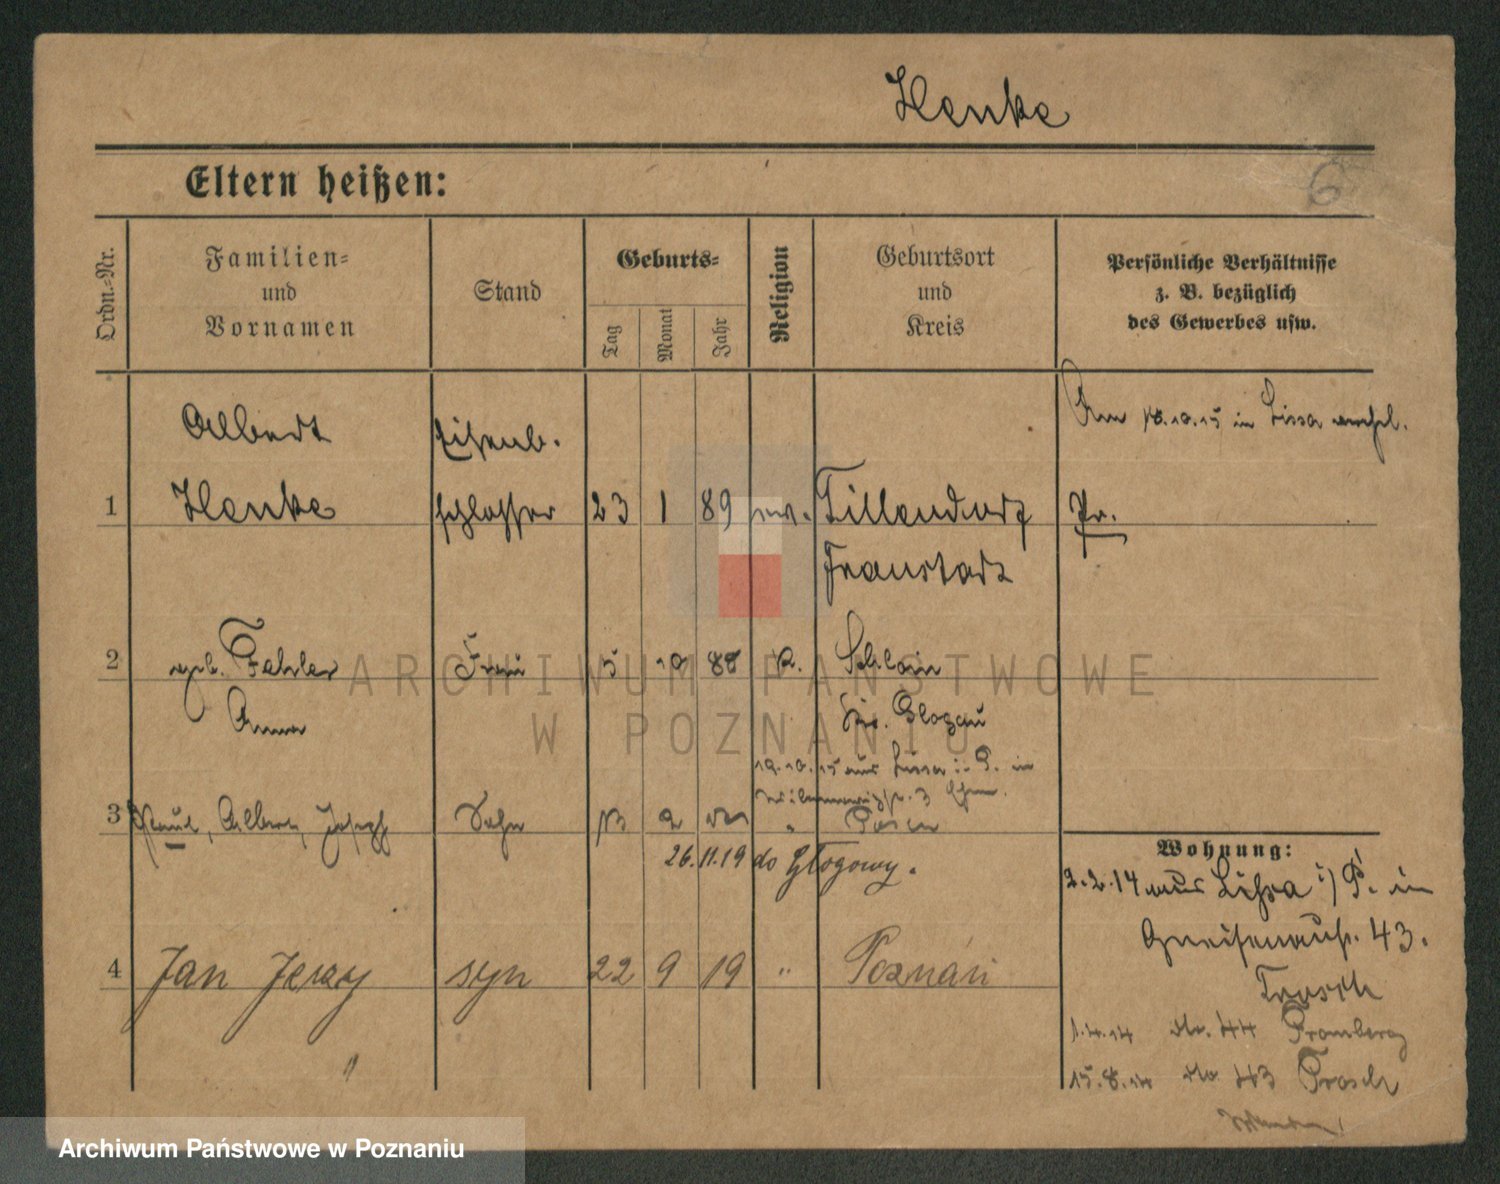 Henke
Eltern heißen:
6
Ordn.-Nr.
Familien-
und
Vornamen
Stand
Geburts-
Tag
Monat
Jahr
Religion
Geburtsort
und
Kreis
Persönliche Verhältnisse
z. B. bezüglich
des Gewerbes usw.
Albert
Eisenb.
Am 18.10.15 in Lissa
1
Henke
schlosser
23
1
89
ev.
Tillendorf
Pr.
Fraustadt
2
geb. Fehler
Frau
5
10
88
k.
Schloin
Anna
Kr. Glogau
19.10.15 aus Lissa i. P. in
3
Paul, Albert, Joseph
Sohn
2
"
Posen
26.11.19 do Głogowy.
Wohnung:
2.2.14 aus Lissa i/P. in
Gneisenaustr. 43.
Trosch
4
Jan Jerzy
syn
22
9
19
"
Poznań
1.4.14 do. 44 Bromberg
15.8.14 do 43 Trosch
"
ARCHIWUM PAŃSTWOWE
W POZNANIU
Archiwum Państwowe w Poznaniu